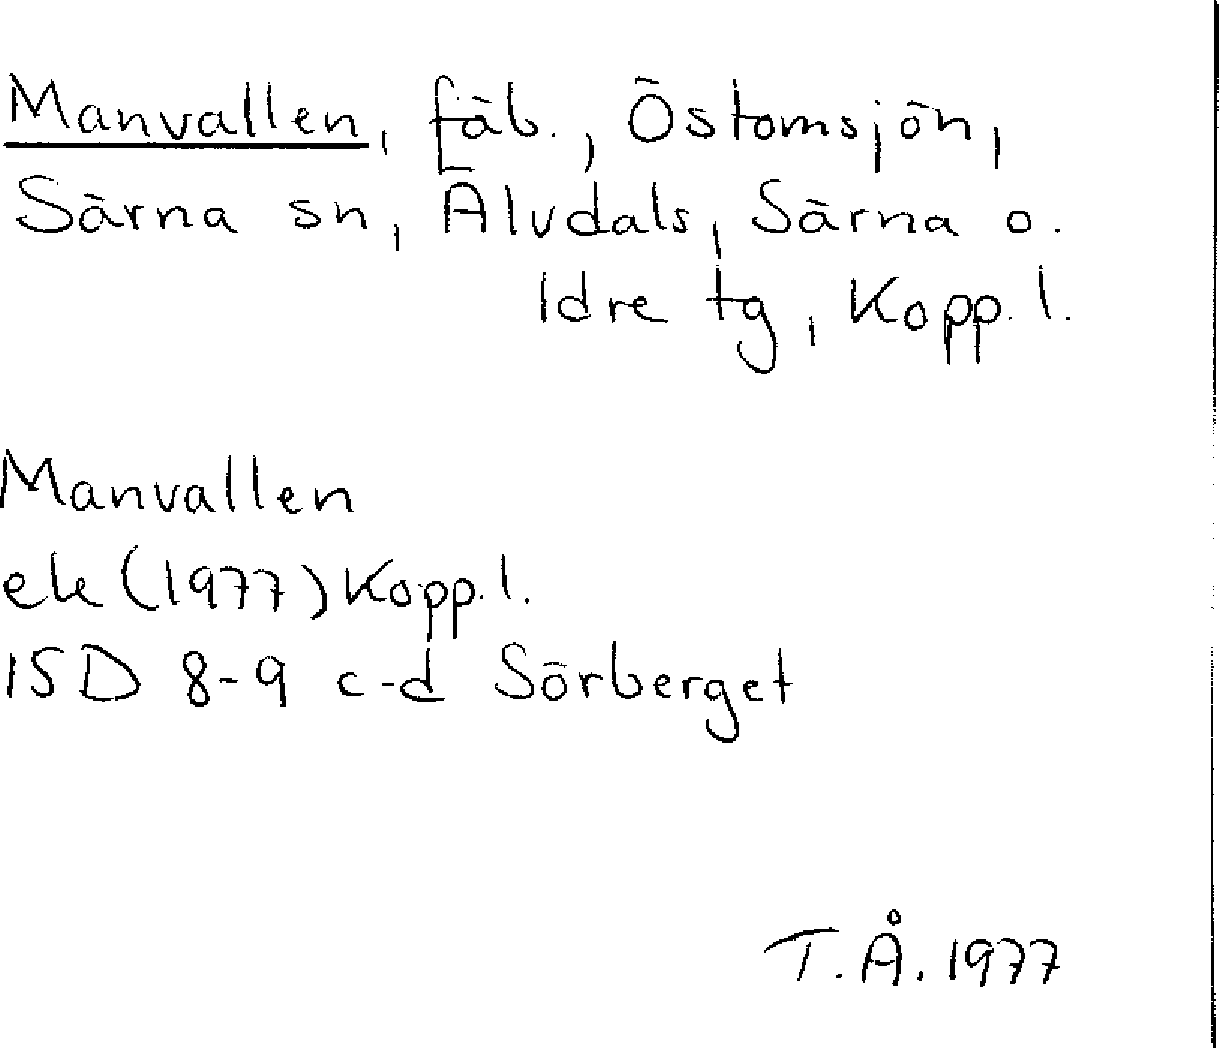 Manvallen, fäb., Östomsjön,
Särna sn, Älvdals, Särna o.
Idre tg, Kopp. l.
Manvallen
ek (1977) Kopp. l.
15D 8-9 c-d Sörberget
T. Å. 1977